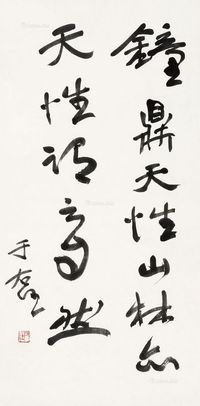 鐘鼎天性山林亦
天性高然
于右任